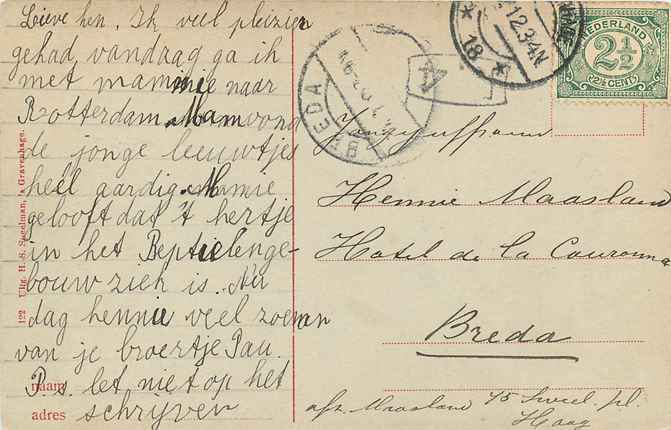 Lieve hen. Ik veel pleizier
gehad vandaag ga ik
met mammie naar
Rotterdam. Mam vond
de jonge leeuwtjes
heel aardig. Mamie
gelooft dat 't hertje
in het Reptielenge-
bouw ziek is. Nu
dag hennie veel zoenen
van je broertje Pau.
P.s. let niet op het
schrijven
naam
adres
122 Uitg. H. S. Speelman, 's Gravenhage.
BREDA
12.34N
18
NEDERLAND
2½
(2½ CENT)
Jongejuffrouw
Hennie Maasland
Hotel de la Couronne
Breda
afz. Maasland
Haag